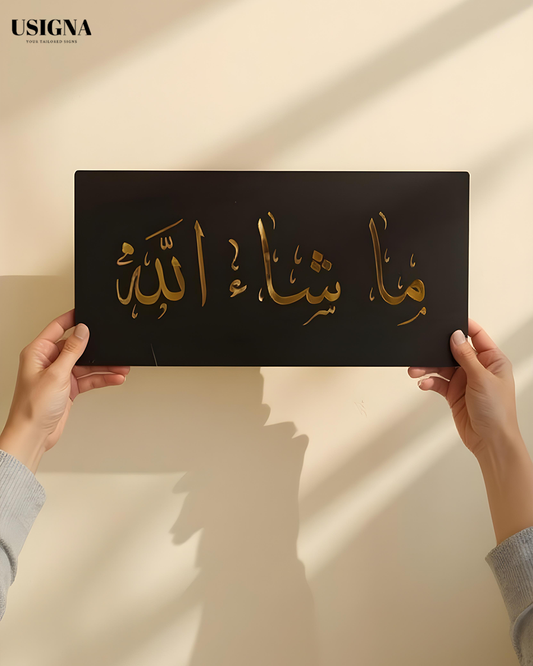 USIGNA
YOUR TAILORED SIGNS
ما شاء الله